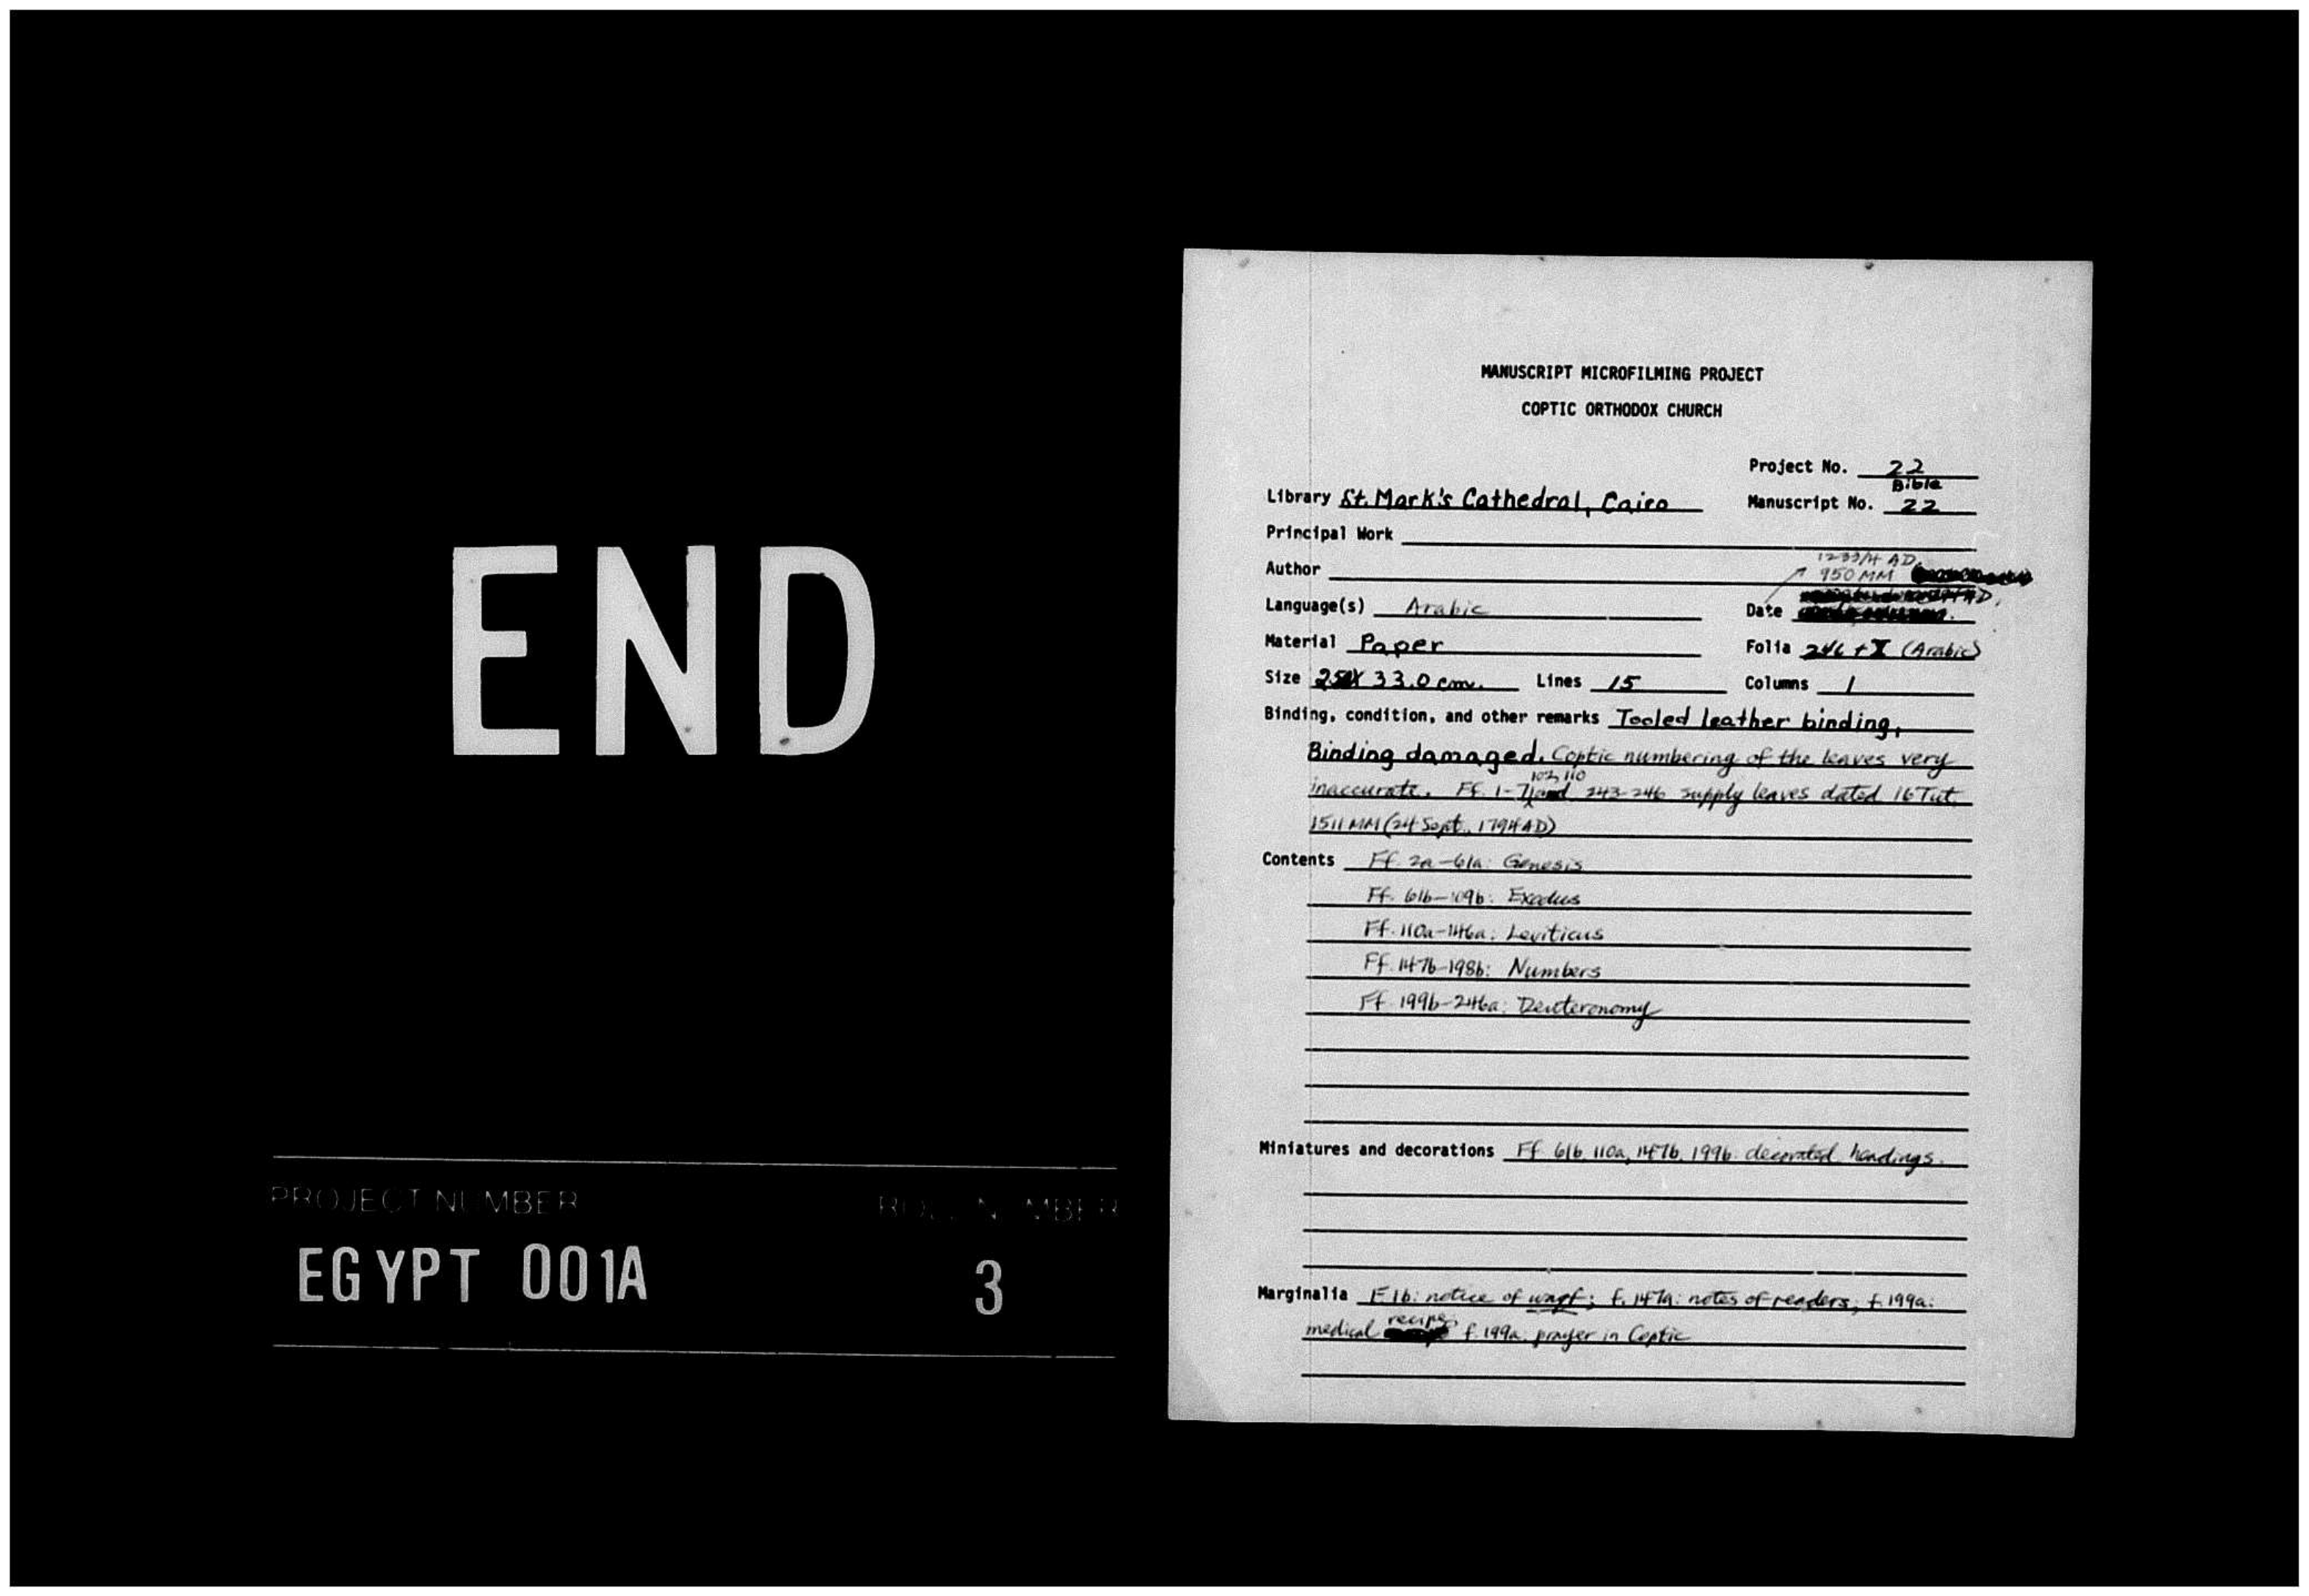 END
PROJECT NUMBER
EGYPT 001A
3
MANUSCRIPT MICROFILMING PROJECT
COPTIC ORTHODOX CHURCH
Project No. 22
Library St. Mark's Cathedral, Cairo Manuscript No. Bible 22
Principal Work
Author
1233/4 AD
950 MM
Language(s) Arabic Date
Material Paper Folia 246 + I (Arabic)
Size 33.0 cm. Lines 15 Columns 1
Binding, condition, and other remarks Tooled leather binding.
Binding damaged. Coptic numbering of the leaves very
inaccurate. Ff. 1-7, 102, 110 and 243-246 supply leaves dated 16 Tut
1511 MM (24 Sept., 1794 AD)
Contents Ff. 2a-61a: Genesis
Ff. 61b-109b: Exodus
Ff. 110a-146a: Leviticus
Ff. 147b-198b: Numbers
Ff. 199b-246a: Deuteronomy
Miniatures and decorations Ff 61b, 110a, 147b, 199b: decorated headings.
Marginalia F 1b: notice of waqf; f. 147a: notes of readers; f. 199a:
medical recipe f. 199a: prayer in Coptic